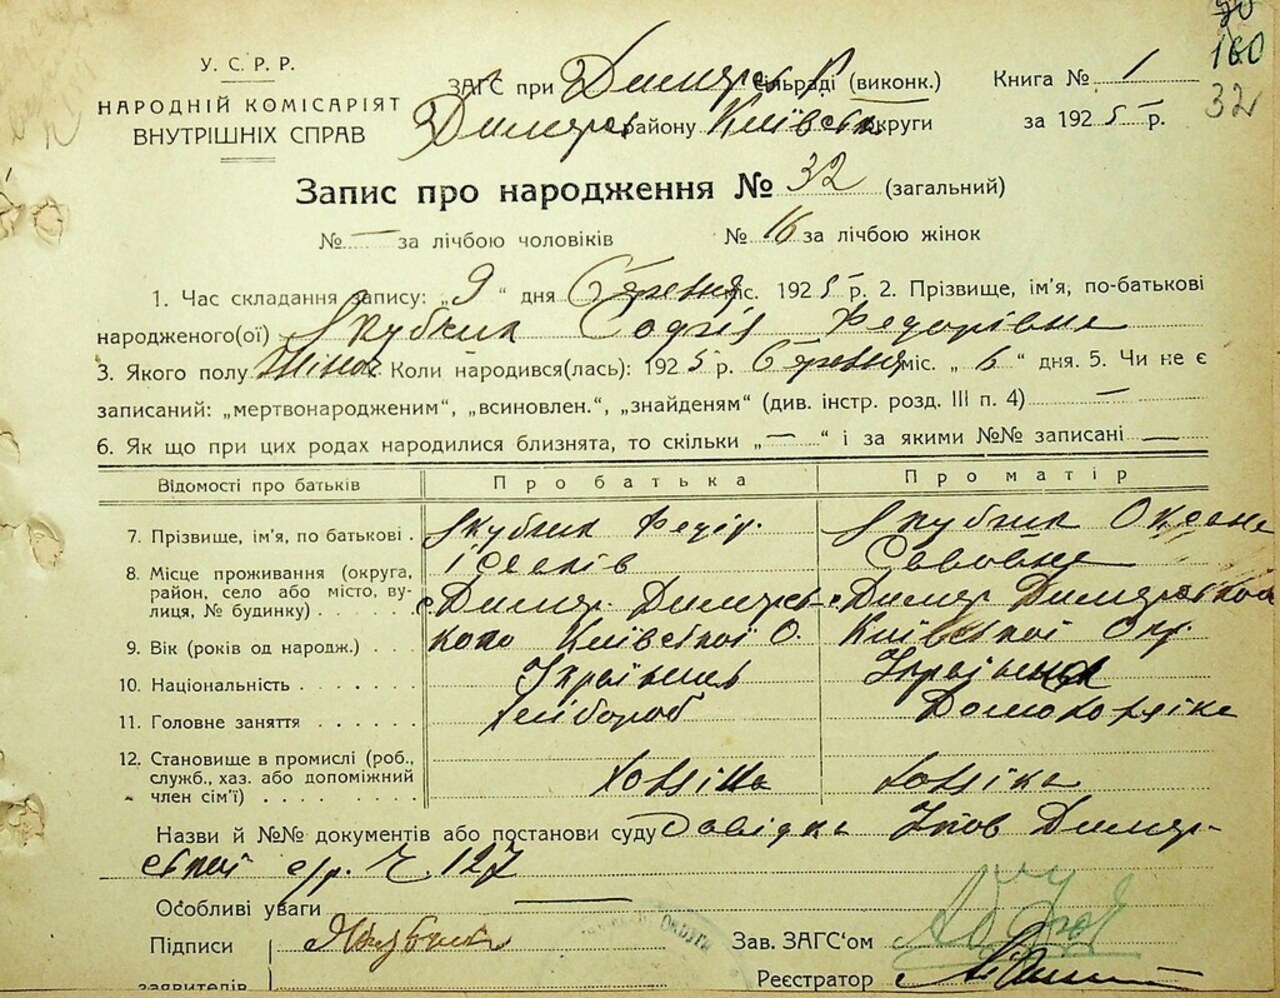 160
32
У. С. Р. Р.
НАРОДНІЙ КОМІСАРІЯТ
ВНУТРІШНІХ СПРАВ
ЗАГС при Димерськ сільраді (виконк.) Книга № 1
Димерськ району Київськ округи за 1925 р.
Запис про народження № 32 (загальний)
№ — за лічбою чоловіків № 16 за лічбою жінок
1. Час складання запису: „ 9 “ дня Березня міс. 1925 р. 2. Прізвище, ім'я, по-батькові
народженого(ої) Якубчик Софія Федорівна
3. Якого полу Жіноч Коли народився(лась): 1925 р. Березня міс. „ 6 “ дня. 5. Чи не є
записаний: „мертвонародженим“, „всиновлен.“, „знайденям“ (див. інстр. розд. III п. 4) —
6. Як що при цих родах народилися близнята, то скільки „ — “ і за якими №№ записані —
Відомості про батьків Про батька Про матір
7. Прізвище, ім'я, по батькові . Якубчик Федір. Якубчик Оксана
Савовна
8. Місце проживання (округа, район, село або місто, вулиця, № будинку) . . . . . с Димер. Димерсь- с Димер Димерської
9. Вік (років од народж.) . . . кого Київської О. Київської Окр.
10. Національність . . . . . . . Українець Українка
11. Головне заняття . . . . . . хлібороб Домохозяйка
12. Становище в промислі (роб., служб., хаз. або допоміжний член сім'ї) . . . . . . . . .
Назви й №№ документів або постанови суду Довідка Упов Димер-
ської с/р. Ч. 127
Особливі уваги —
Підписи Якубчик Зав. ЗАГС'ом
заявителів Реєстратор
ОКРУГИ